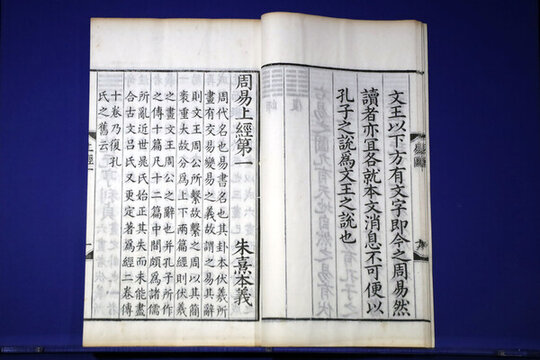 易圖
九
文王以下方有文字即今之周易然
讀者亦宜各就本文消息不可便以
孔子之說爲文王之說也
周易上經第一　朱熹本義
周代名也易書名也其卦本伏羲所
畫有交易變易之義故謂之易其辭
則文王周公所繫故繫之周以其簡
袠重大故分爲上下兩篇經則伏羲
之畫文王周公之辭也并孔子所作
之傳十篇凡十二篇中間頗爲諸儒
所亂近世晁氏始正其失而未能盡
合古文呂氏又更定著爲經二卷傳
十卷乃復孔
氏之舊云
上經一